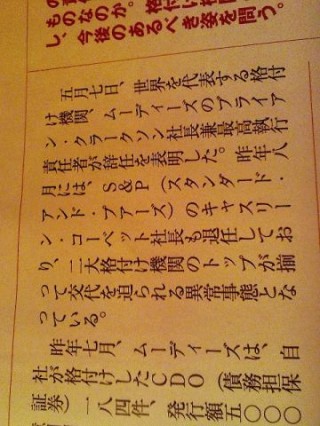 し、今後のあるべき姿を問う。
五月七日、世界を代表する格付
け機関、ムーディーズのブライア
ン・クラークソン社長兼最高執行
責任者が辞任を表明した。昨年八
月には、S&P(スタンダード・
アンド・プアーズ)のキャスリー
ン・コーベット社長も退任してお
り、二大格付け機関のトップが揃
って交代を迫られる異常事態とな
っている。
昨年七月、ムーディーズは、自
社が格付けしたCDO(債務担保
証券)一八四件、発行額五〇〇〇